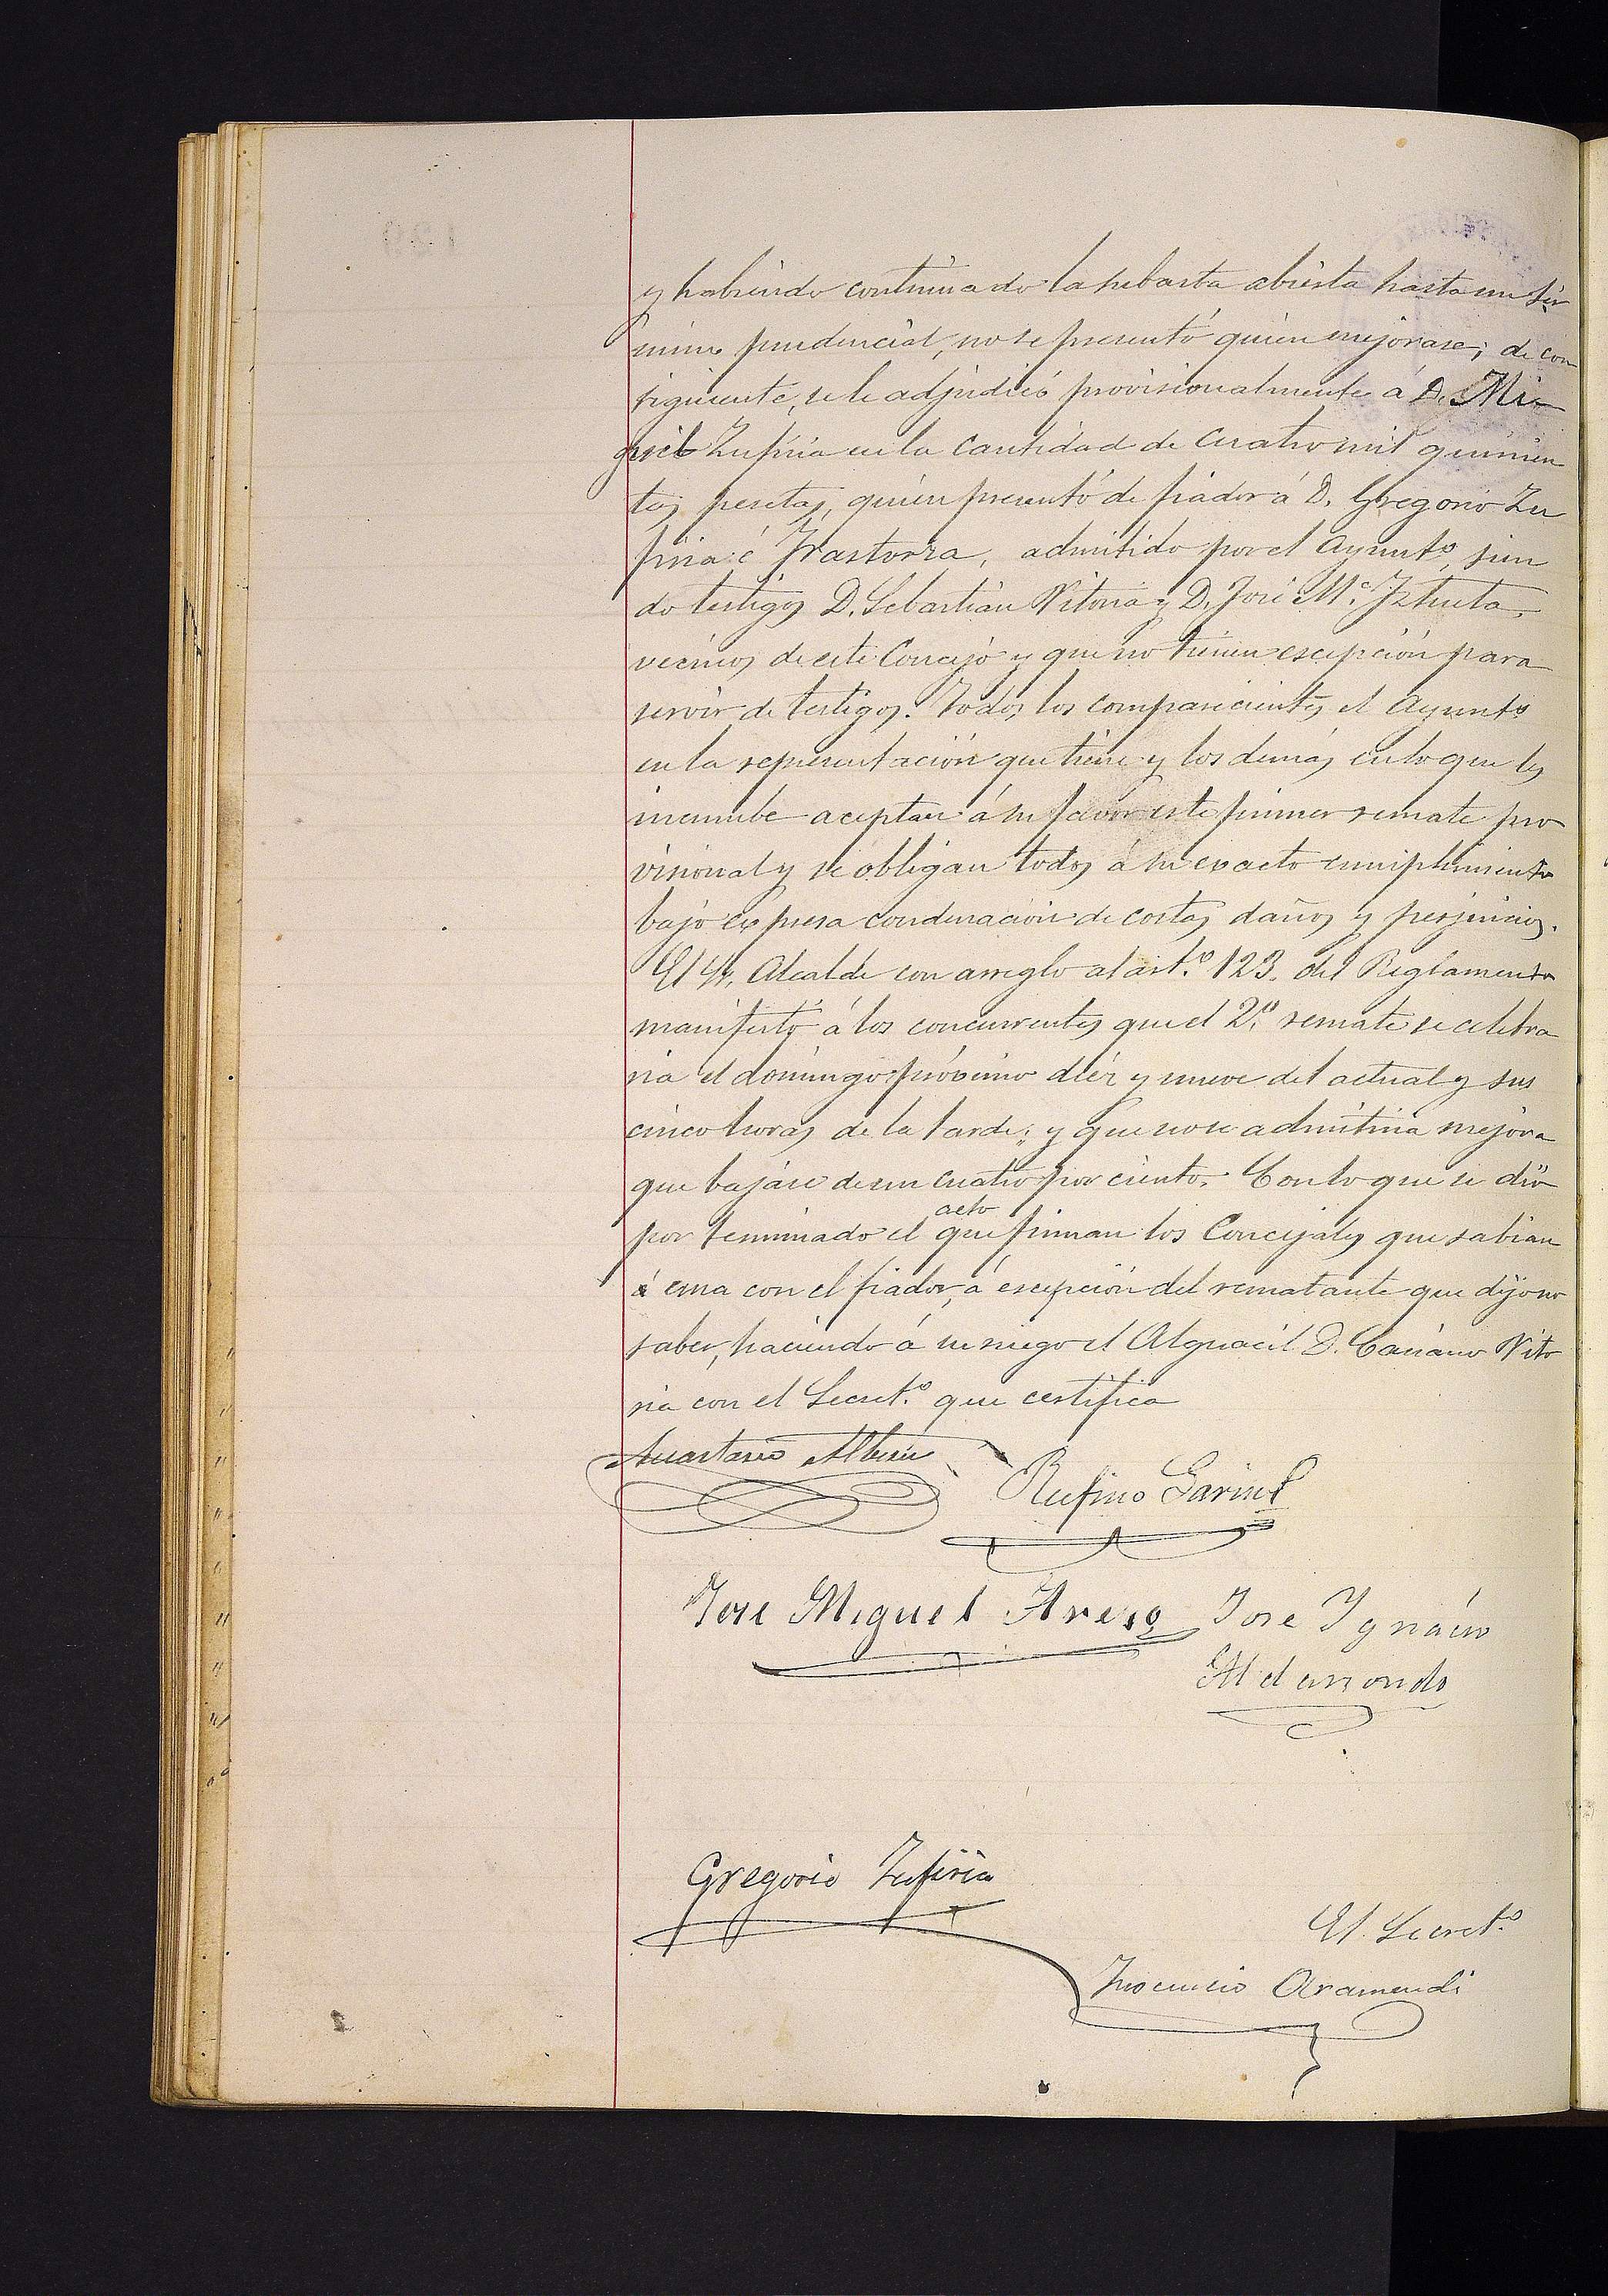 y habiendo continuado la subasta abierta hasta un tér
mino prudencial, no se presentó quien mejorase; de con
siguiente, se le adjudicó provisionalmente á D. Mi-
guel Zufiria en la cantidad de cuatro mil quinien
tas pesetas, quien presentó de fiador á D. Gregorio Zu
firia é Irastorza, admitido por el Ayunto, sien
do testigos D. Sebastián Vitoria y D. José Mª Iztueta,
vecinos de este Concejo y que no tienen escepción para
servir de testigos. Todos los comparecientes, el Ayunto
en la representación que tiene y los demás en lo que les
incumbe aceptan á su favor este primer remate pro
visional y se obligan todos á su exacto cumplimiento
bajo expresa condenación de costas daños y perjuicios.
El Sr. Alcalde con arreglo al artº 123. del Reglamento
manifestó á los concurrentes que el 2º remate se celebra
ria el domingo próximo diez y nueve del actual y sus
cinco horas de la tarde; y que no se admitiria mejora
que bajáse de un cuatro por ciento. Con lo que se dió
por terminado el acto que firman los Concejales que sabian
á una con el fiador, á escepción del rematante que dijo no
saber, haciendo á su ruego el Alguacil D. Vito
ria con el Secretº que certifica
Anastasio Alberdi
Rufino
José Miguel José Ygnácio
Aldasoro
Gregorio Zufiria
El Secretº
Inocencio Aramendi